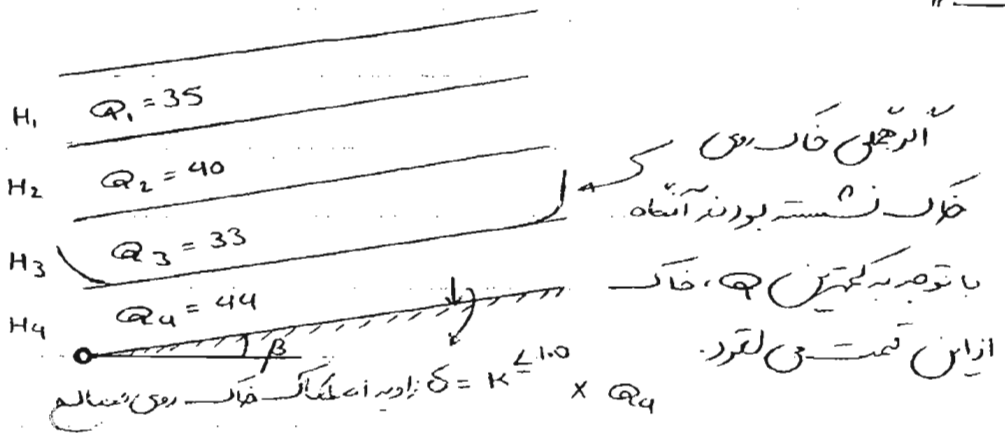 H₁ Q₁ = 35
H₂ Q₂ = 40
H₃ Q₃ = 33
H₄ Q₄ = 44
β
اگر همگی خاک روی
خاک نشسته بودند آنگاه
با توجه به کمترین Q، خاک
از این قسمت می لغزد.
زاویه اصطکاک خاک روی δ = K^≤1.0 × Q₄